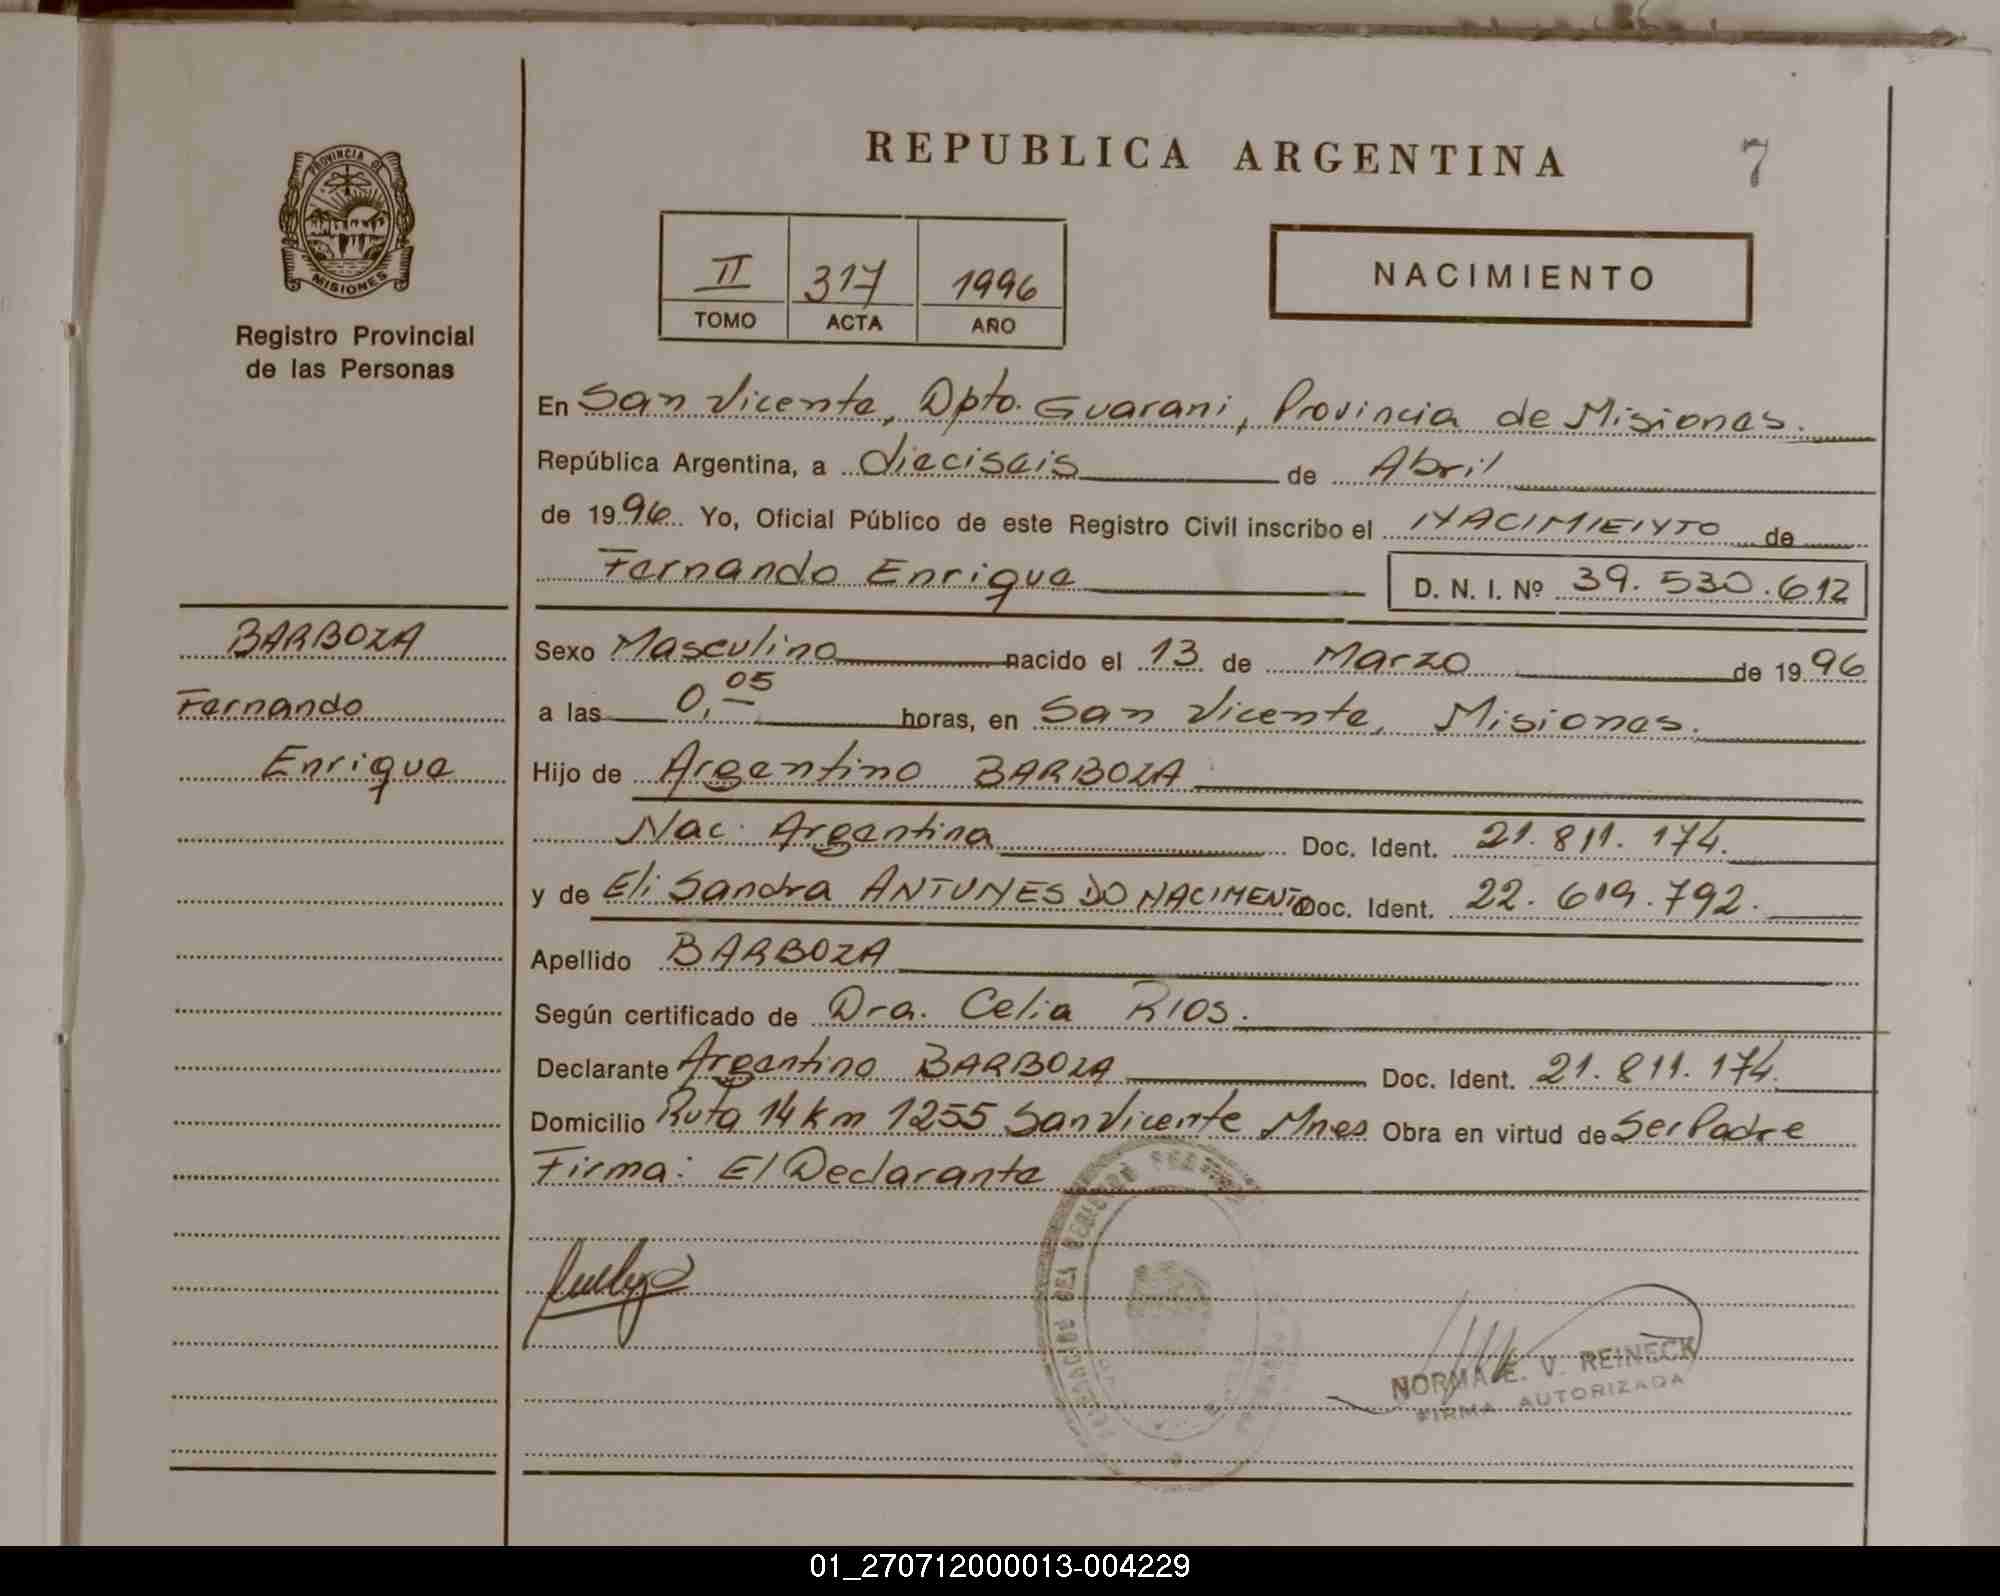 PROVINCIA DE
MISIONES
Registro Provincial
de las Personas
REPUBLICA ARGENTINA
7
II 317 1996
TOMO ACTA AÑO
NACIMIENTO
En San Vicente, Dpto. Guarani, Provincia de Misiones.
República Argentina, a dieciseis de Abril
de 1996 Yo, Oficial Público de este Registro Civil inscribo el NACIMIENTO de
Fernando Enrique D. N. I. Nº 39.530.612
BARBOZA
Fernando
Enrique
Sexo Masculino nacido el 13 de Marzo de 1996
a las 0,05 horas, en San Vicente, Misiones.
Hijo de Argentino BARBOZA
Nac. Argentina Doc. Ident. 21.811.174.
y de Eli Sandra ANTUNES DO NACIMENTO Doc. Ident. 22.619.792.
Apellido BARBOZA
Según certificado de Dra. Celia RIOS.
Declarante Argentino BARBOZA Doc. Ident. 21.811.174.
Domicilio Ruta 14 km 1255 San Vicente Mnes Obra en virtud de Ser Padre
Firma: El Declarante
NORMA E. V. REINECK
FIRMA AUTORIZADA
01_270712000013-004229